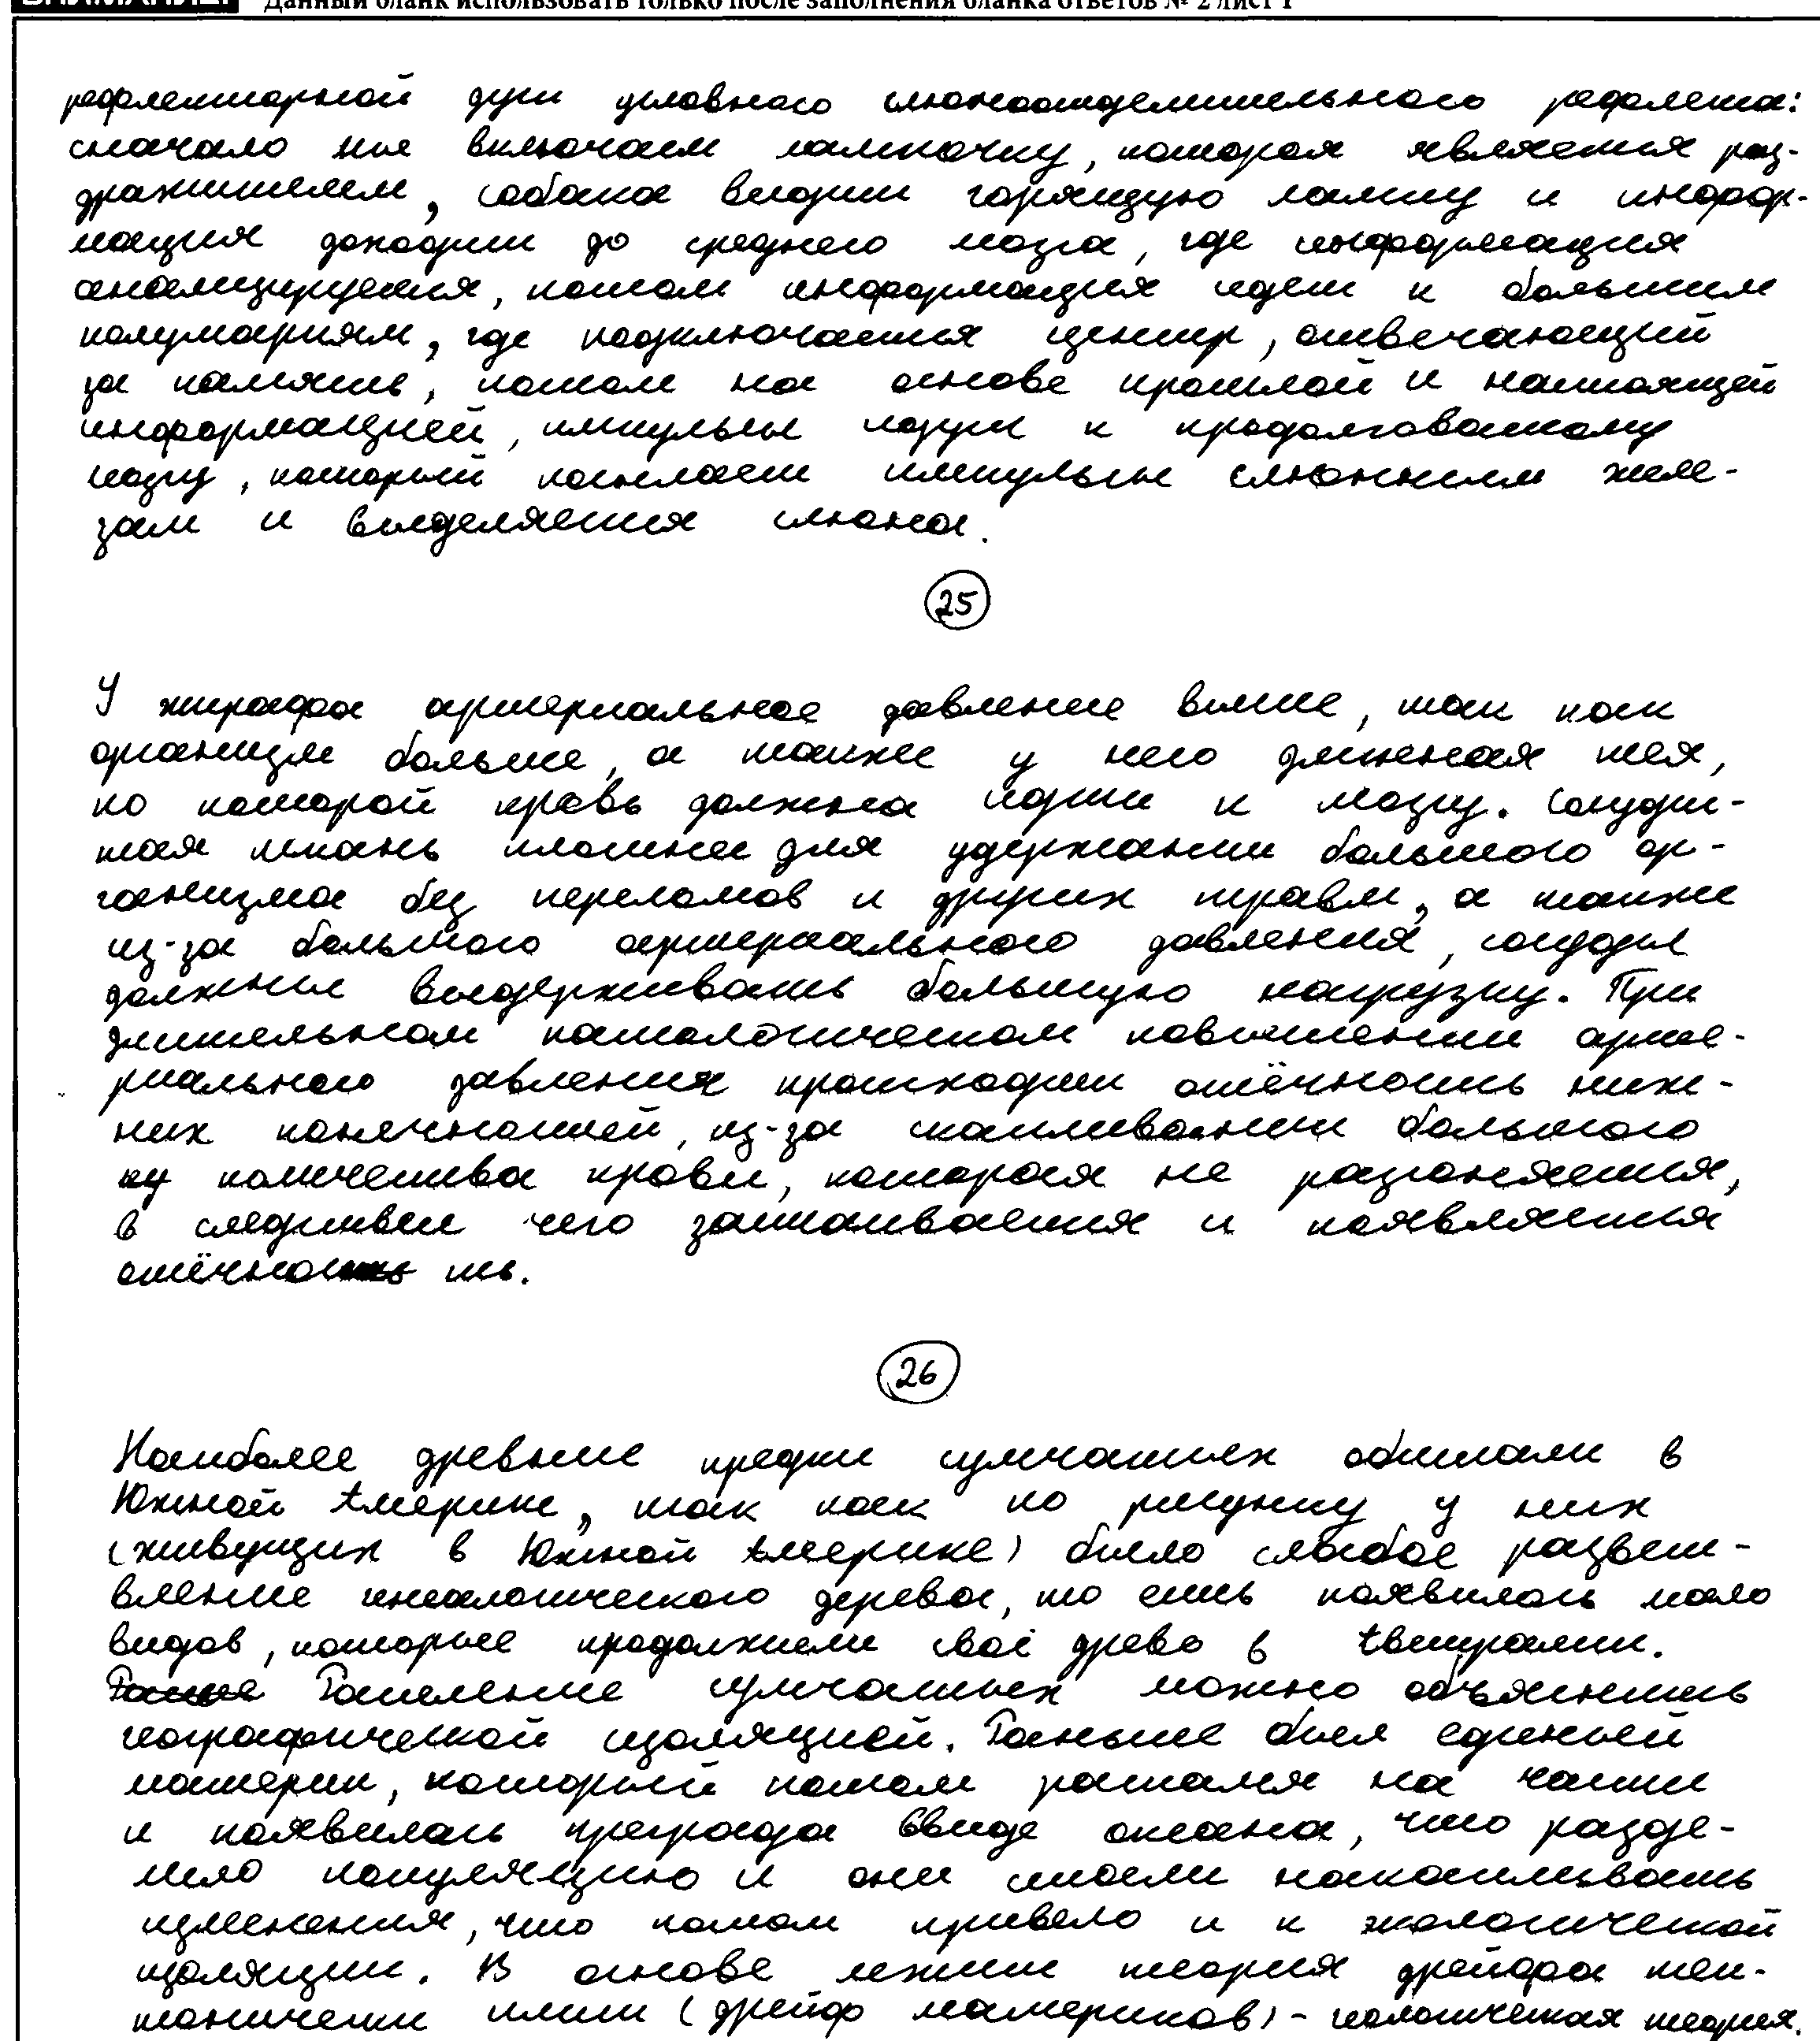 Данный бланк использовать только после заполнения бланка ответов № 2 лист 1
рефлекторной дуги условного слюноотделительного рефлекса:
сначало мы включаем лампочку, которая является раз-
дражителем, собака видит горящую лампу и инфор-
мация доходит до среднего мозга, где информация
анализируется, потом информация идет к большим
полушариям, где подключается центр, отвечающий
за память, потом на основе прошлой и настоящей
информацией, импульсы идут к продолговатому
мозгу, который посылает импульсы слюнным желе-
зам и выделяется слюна.
25
У жирафа артериальное давление выше, так как
организм больше, а также у него длинная шея,
по которой кровь должна идти к мозгу. Сосудис-
тая ткань плотнее для удержании большого ор-
ганизма без переломов и других травм, а также
из-за большого артериального давления, сосуды
должны выдерживать большую нагрузку. При
длительном патологическом повышении арте-
риального давления происходит отёчность ниж-
них конечностей, из-за скапливании большого
количества крови, которая не разгоняется,
в следствии чего застаивается и появляется
отёчность.
26
Наиболее древние предки сумчатых обитали в
Южной Америке, так как по рисунку у них
(живущих в Южной Америке) было слабое развет-
вление генеалогического дерева, то есть появилось мало
видов, которые продолжили своё древо в Австралии.
Расселение сумчатых можно объяснить
географической изоляцией. Раньше был единый
материк, который потом распался на части
и появилась преграда ввиде океана, что разде-
лило популяцию и они стали накапливать
изменения, что потом привело и к экологической
изоляции. В основе лежит теория дрейфа тек-
тонически плит (дрейф материков) - геологическая теория.